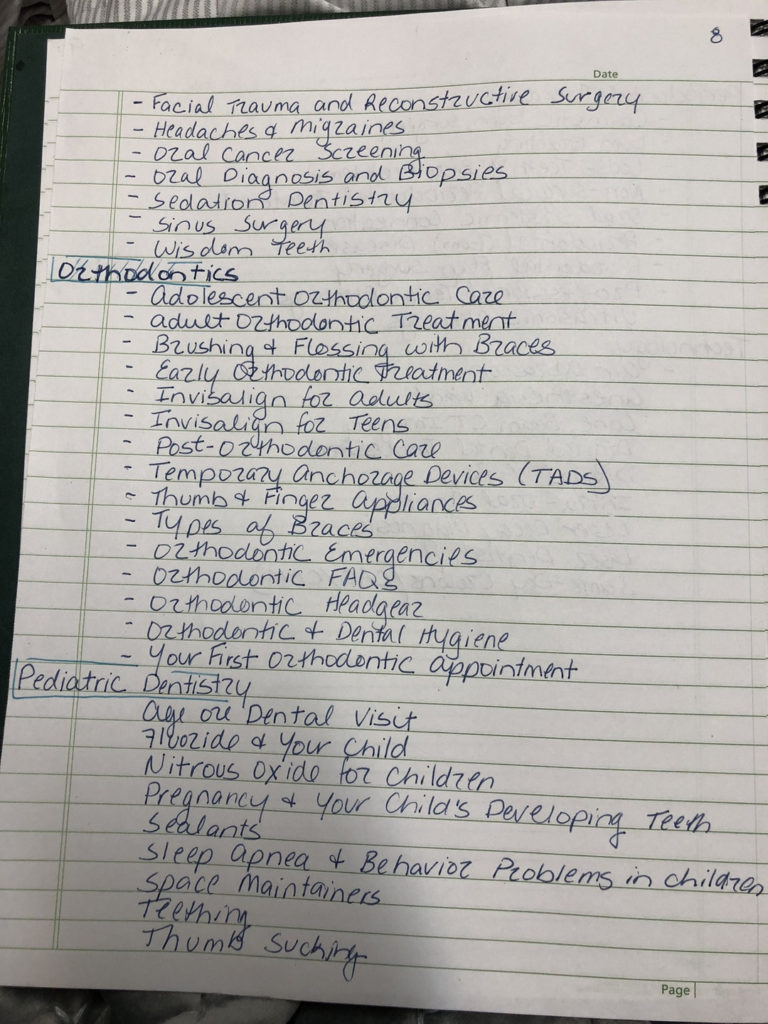 8
Date
- Facial Trauma and Reconstructive Surgery
- Headaches & Migraines
- Oral Cancer Screening
- Oral Diagnosis and Biopsies
- Sedation Dentistry
- Sinus Surgery
- Wisdom Teeth
Orthodontics
- Adolescent Orthodontic Care
- Adult Orthodontic Treatment
- Brushing & Flossing with Braces
- Early Orthodontic Treatment
- Invisalign for Adults
- Invisalign for Teens
- Post-Orthodontic Care
- Temporary Anchorage Devices (TADS)
- Thumb & Finger Appliances
- Types of Braces
- Orthodontic Emergencies
- Orthodontic FAQs
- Orthodontic Headgear
- Orthodontic & Dental Hygiene
- Your First Orthodontic Appointment
Pediatric Dentistry
Age one Dental Visit
Fluoride & Your Child
Nitrous Oxide for Children
Pregnancy & Your Child's Developing Teeth
Sealants
Sleep Apnea & Behavior Problems in Children
Space Maintainers
Teething
Thumb Sucking
Page